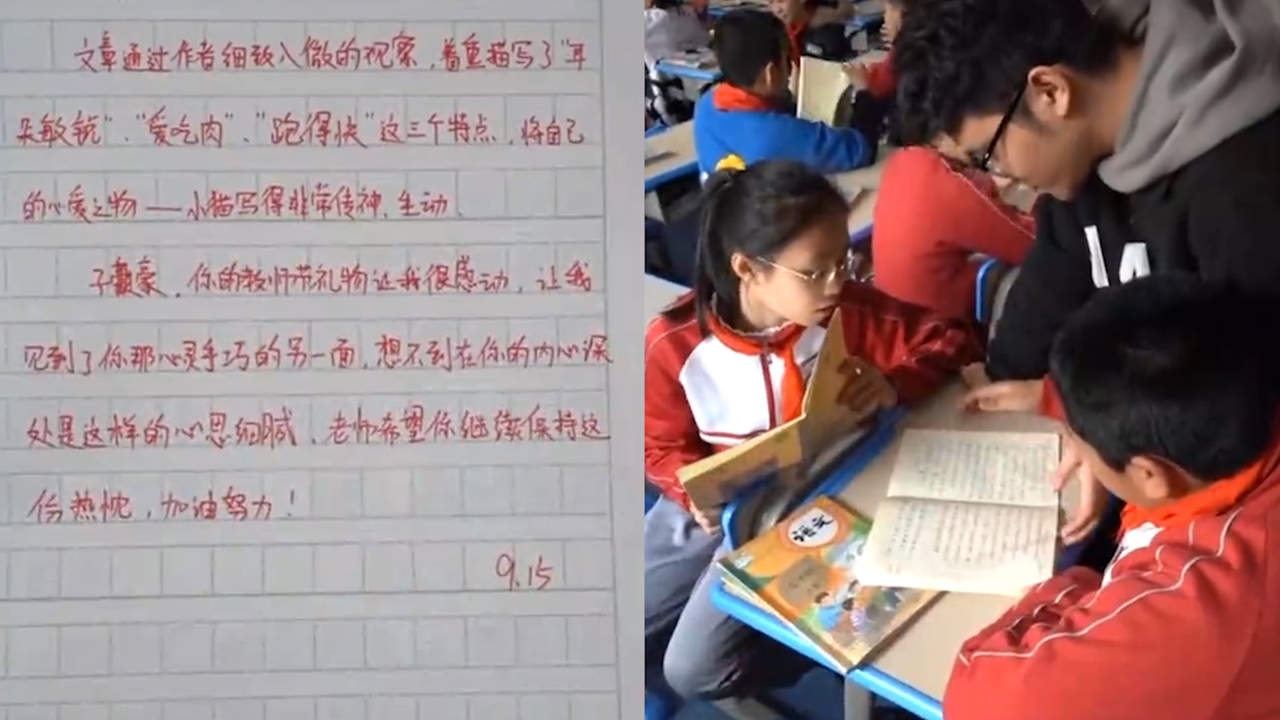 文章通过作者细致入微的观察，着重描写了“耳
朵敏锐”、“爱吃肉”、“跑得快”这三个特点，将自己
的心爱之物——小猫写得非常传神、生动。
子豪，你的教师节礼物让我很感动，让我
见到了你那心灵手巧的另一面，想不到在你的内心深
处是这样的心思细腻，老师希望你继续保持这
份热忱，加油努力！
9.15
LA
语文